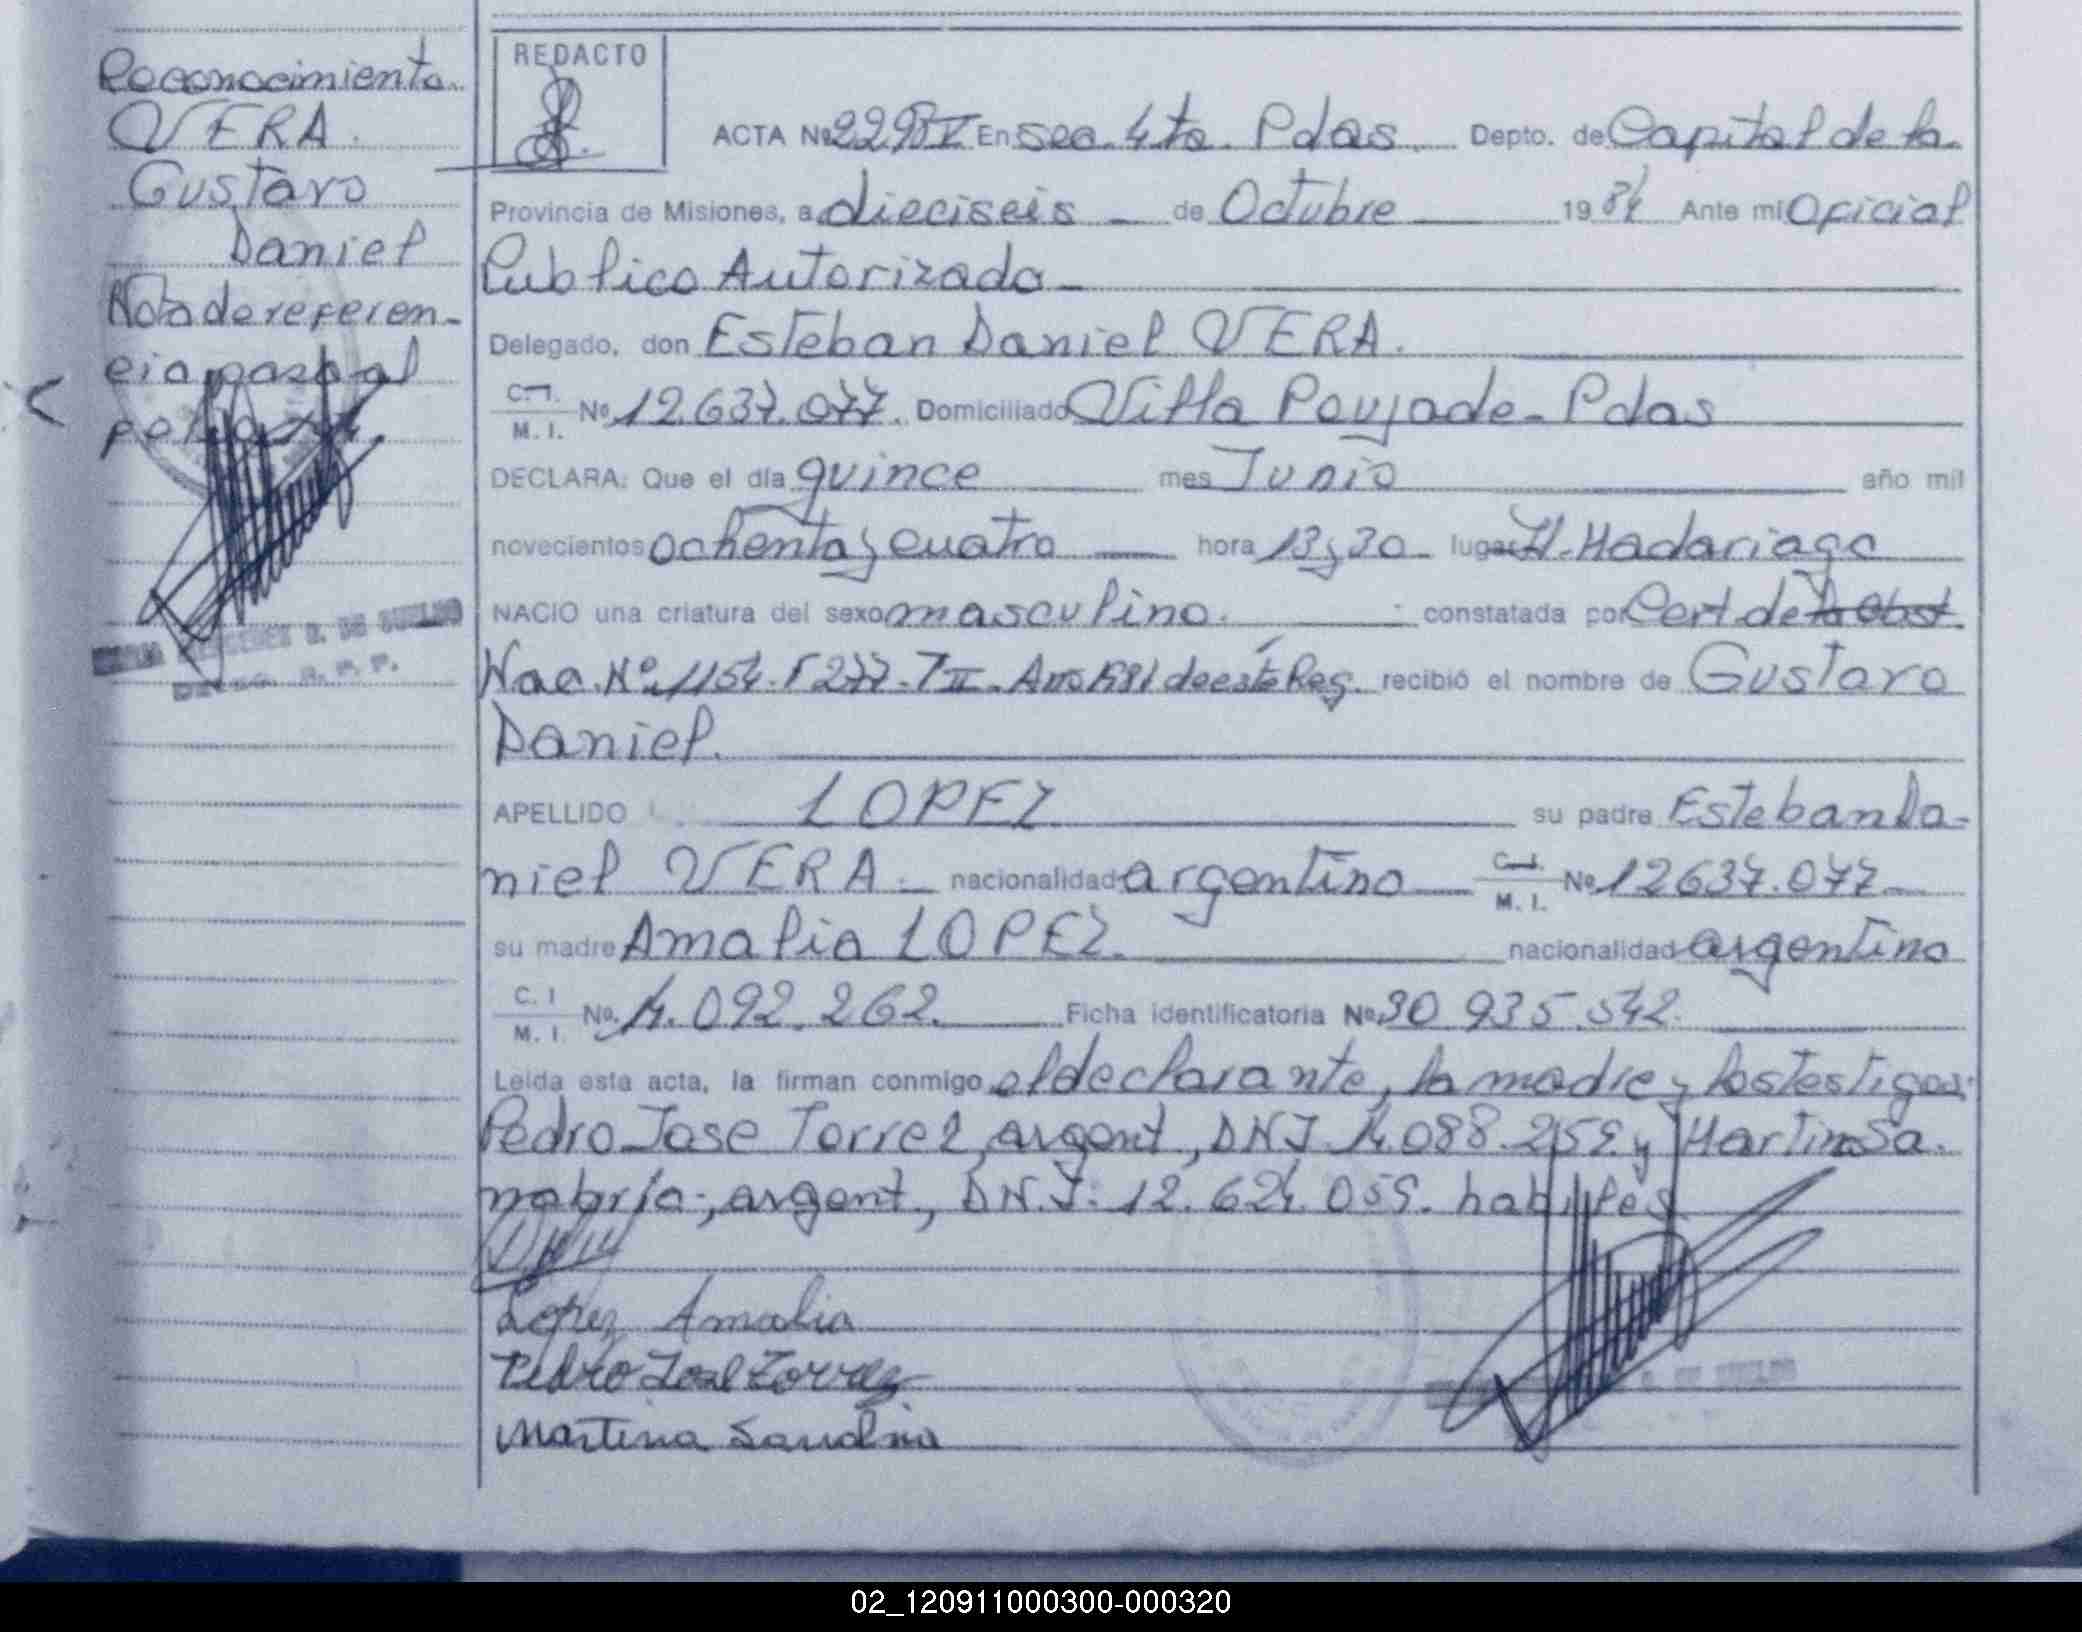 Reconocimiento.
VERA.
Gustavo
Daniel
Nota de referen-
cia pasa al
REDACTO
ACTA Nº 229 En sec. 4ta. Pdas. Depto. de Capital de la
Provincia de Misiones, a dieciseis de Octubre 1984 Ante mi Oficial
Publico Autorizado
Delegado, don Esteban Daniel VERA.
C. I.
M. I. Nº 12.637.077. Domiciliado Villa Poujade - Pdas
DECLARA: Que el día quince mes Junio año mil
novecientos ochenta y cuatro hora 13,30 lugar H. Madariaga
NACIO una criatura del sexo masculino. constatada por Cert de la Obst.
Nac. Nº 1154. F 277. T II. Año 1981 de este Reg. recibió el nombre de Gustavo
Daniel.
APELLIDO LOPEZ su padre Esteban Da-
niel VERA. nacionalidad argentino C. I.
M. I. Nº 12637.077
su madre Amalia LOPEZ. nacionalidad argentino
C. I
M. I. No. 14.092.262. Ficha identificatoria Nº 30 935.542.
Leída esta acta, la firman conmigo el declarante, la madre y los testigos
Pedro Jose Torrez, argent, DNI 14.088.259 y Martina Sa.
nabria, argent., D.N.I: 12.624.059. habiles
Lopez Amalia
Pedro José Torrez
Martina Sanabria
02_120911000300-000320